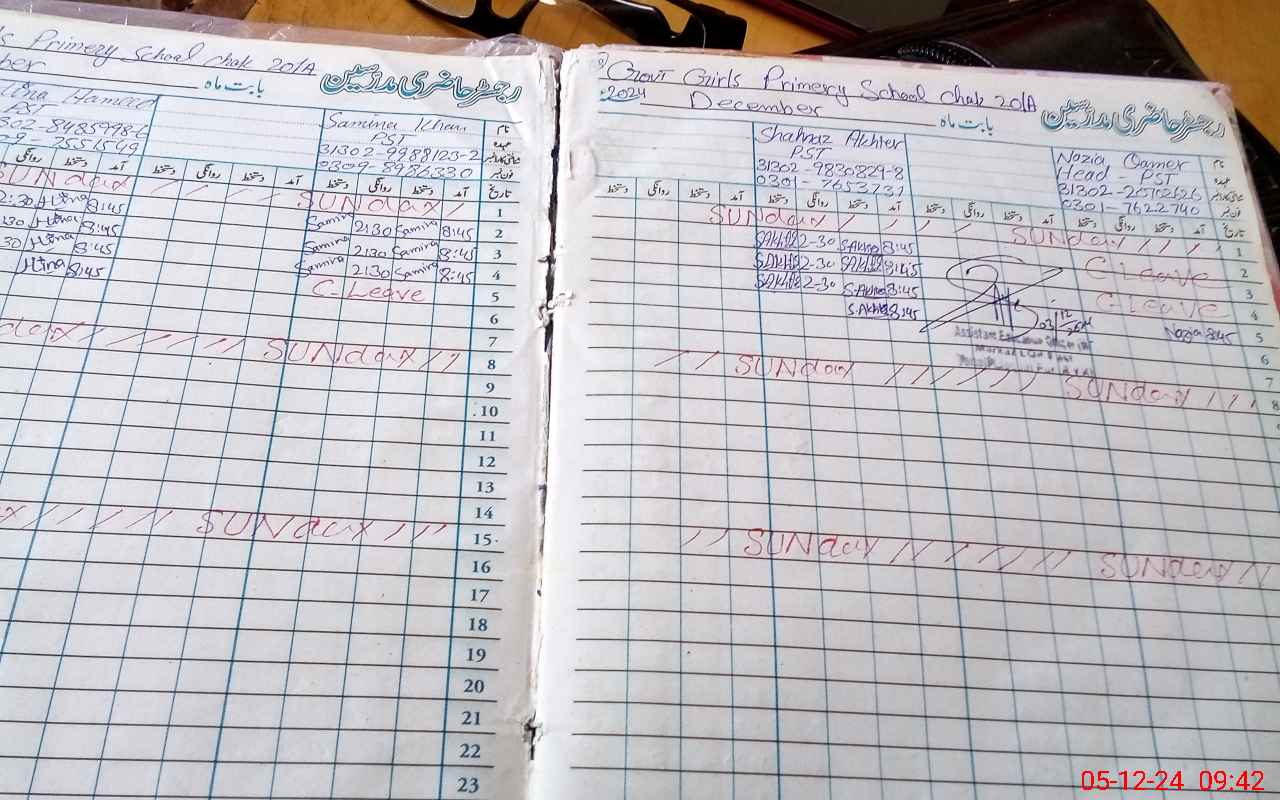 ls Primery School chak 20/A
رجسٹر حاضری مدرسین
بابت ماہ
Hina Hameed
PST
Samina Khan
PST
31302-9988123-2
0309-8986330
نام
عہدہ
فون نمبر
روانگی دستخط آمد دستخط روانگی دستخط آمد دستخط روانگی دستخط آمد تاریخ
SUNday / / / / SUNday / 1
2:30 Hina 8:45 Samina 2:30 Samina 8:45 2
Hina 8:45 Samina 2:30 Samina 8:45 3
Hina 8:45 Samina 2:30 Samina 8:45 4
Hina 8:45 C-Leave 5
6
7
SUNday / / 8
9
10
11
12
13
14
SUNday / / / 15
16
17
18
19
20
21
22
23
Govt Girls Primery School Chak 20/A
رجسٹر حاضری مدرسین
2024 December بابت ماہ
Shahnaz Akhter
PST
31302-9830829-8
0301-7653731
Nazia Qamer
Head - PST
0301-7622740
نام
عہدہ
فون نمبر
دستخط روانگی دستخط آمد دستخط روانگی دستخط آمد دستخط روانگی دستخط آمد تاریخ
SUNday / / / / SUNday / / / 1
S.Akhter 2-30 S.Akhter 8:45 C-Leave 2
S.Akhter 2-30 S.Akhter 8:45 3
S.Akhter 2-30 S.Akhter 8:45 C-Leave 4
S.Akhter 8:45 Nazia 8:45 5
6
7
/ / SUNday / / / / / / SUNday / / / 8
/ / SUNday / / / / / / SUNday / /
05-12-24 09:42